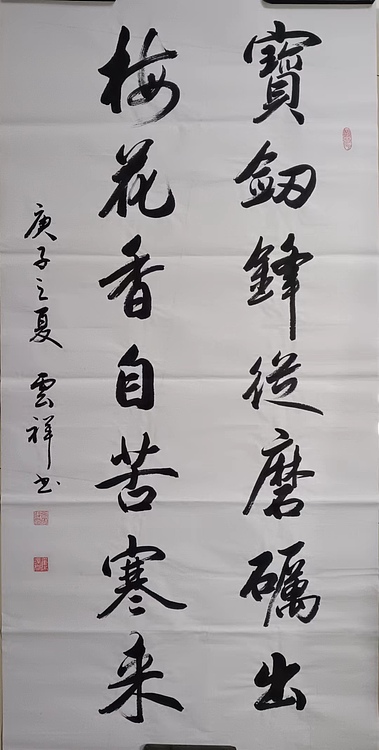 寶劒鋒從磨礪出
梅花香自苦寒来
庚子之夏 雲祥书